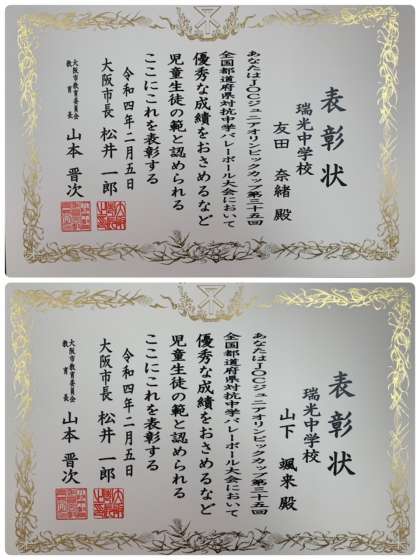 表彰状
瑞光中学校
友田 奈緒 殿
あなたはJOCジュニアオリンピックカップ第三十五回
全国都道府県対抗中学バレーボール大会において
優秀な成績をおさめるなど
児童生徒の範と認められる
ここにこれを表彰する
令和四年二月五日
大阪市長 松井 一郎
大阪市教育委員会
教育長 山本 晋次
表彰状
瑞光中学校
山下 颯来 殿
あなたはJOCジュニアオリンピックカップ第三十五回
全国都道府県対抗中学バレーボール大会において
優秀な成績をおさめるなど
児童生徒の範と認められる
ここにこれを表彰する
令和四年二月五日
大阪市長 松井 一郎
大阪市教育委員会
教育長 山本 晋次